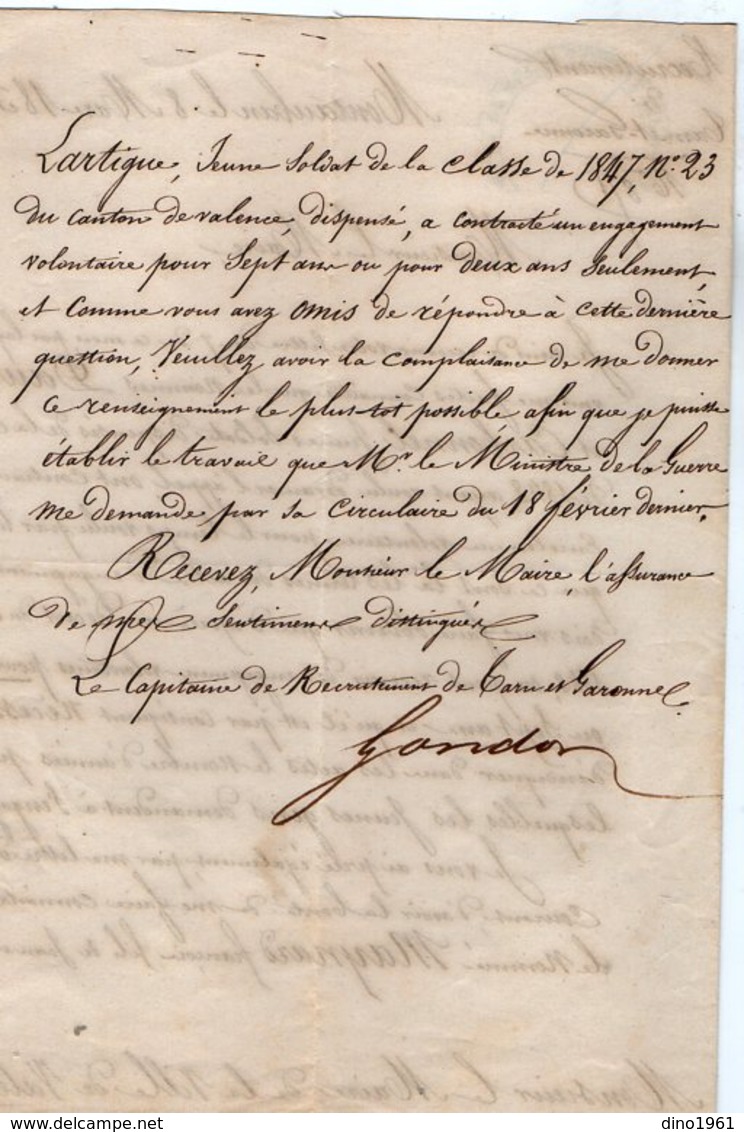 Lartigue, Jeune Soldat de la classe de 1847, N° 23
du canton de valence, dispensé, a contracté un engagement
volontaire pour Sept ans ou pour deux ans seulement,
et comme vous avez omis de répondre à cette dernière
question, Veuillez avoir la complaisance de me donner
ce renseignement le plus-tôt possible, afin que je puisse
établir le travail que Mr. le Ministre de la Guerre
me demande par sa circulaire du 18 février dernier.
Recevez, Monsieur le Maire, l'assurance
de mes sentimens distingués
Le Capitaine de Recrutement de Tarn et Garonne
Gondor
dino1961